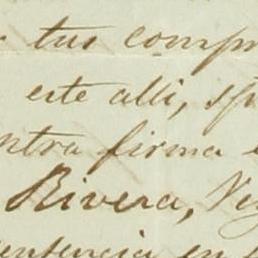 tus compr
este alli, sp
ntra firma e
Rivera, Ve
entencia en